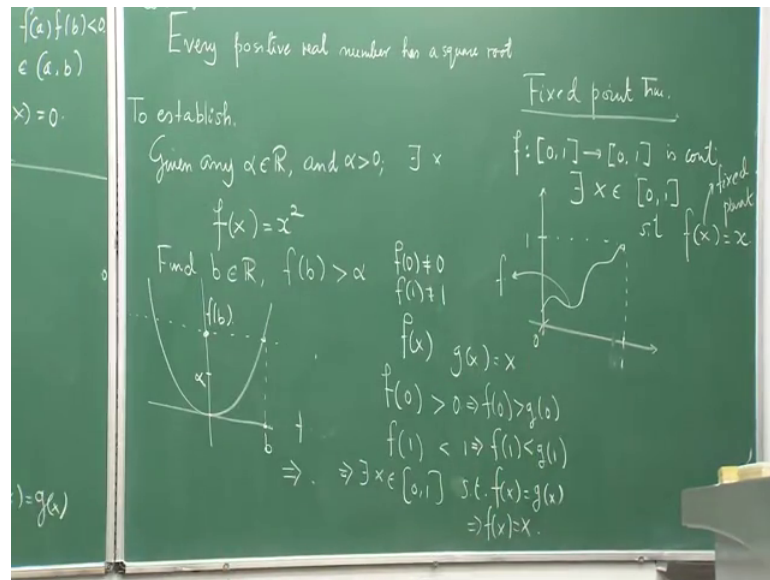 f(a) f(b) < 0
∈ (a, b)
x) = 0.
) = g(x)
Every positive real number has a square root
To establish.
Given any α ∈ ℝ, and α > 0; ∃ x
f(x) = x²
Find b ∈ ℝ, f(b) > α
f(b)
α
b
f(0) ≠ 0
f(1) ≠ 1
f(x) g(x) = x
f(0) > 0 ⇒ f(0) > g(0)
f(1) < 1 ⇒ f(1) < g(1)
⇒. ⇒ ∃ x ∈ [0,1] s.t. f(x) = g(x)
⇒ f(x) = x.
Fixed point Thm.
f: [0,1] → [0,1] is cont.
∃ x ∈ [0,1]
fixed point
s.t f(x) = x
1
f
0
1